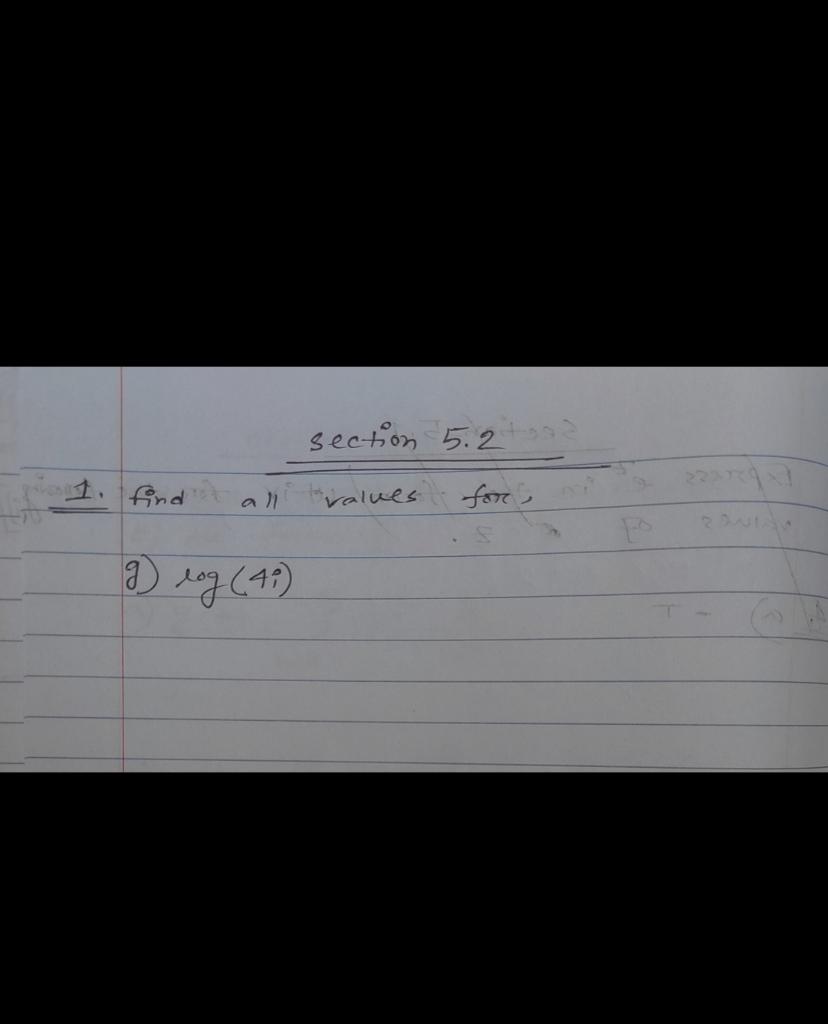 section 5.2
1. find all values for,
g) log (4i)